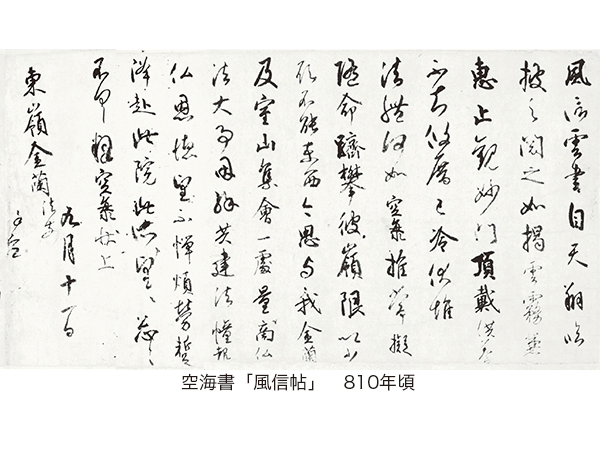 風信雲書自天翔臨
披之閲之如揭雲霧兼
恵止觀妙門頂戴供養
不知攸厝已冷伏惟
法體何如空海推常擬
隨命躋攀彼嶺限以少
願不能東西今思与我金蘭
及室山集會一處量商仏
法大事因縁共建法幢報
仏恩徳望不憚煩勞蹔
降赴此院此所望々忩々
不具釋空海状上
九月十一日
東嶺金蘭法前
謹空
空海書「風信帖」　810年頃